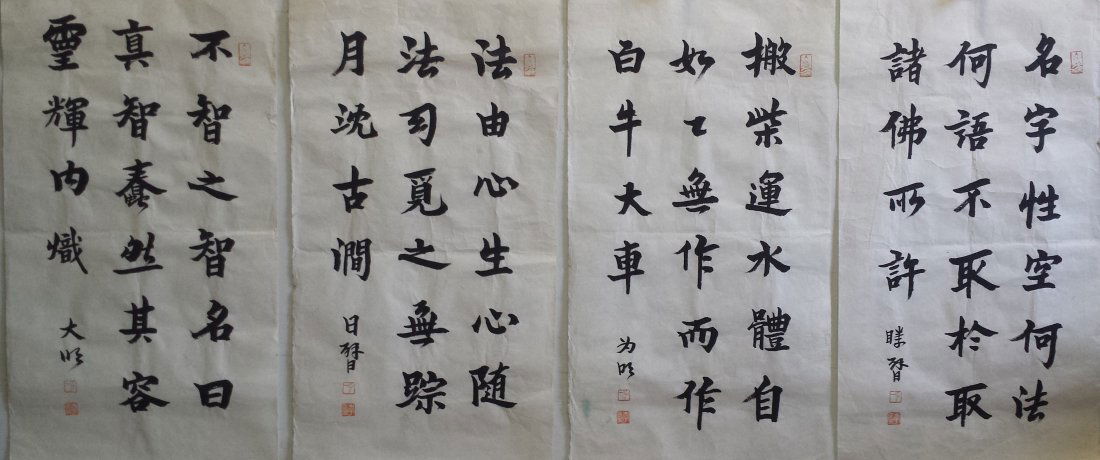 名字性空何法
何語不取於取
諸佛所許
搬柴運水體自
如々無作而作
白牛大車
为明
法由心生心随
法司覓之無踪
月沈古澗
不智之智名曰
真智蠢然其容
霊輝内熾
大明